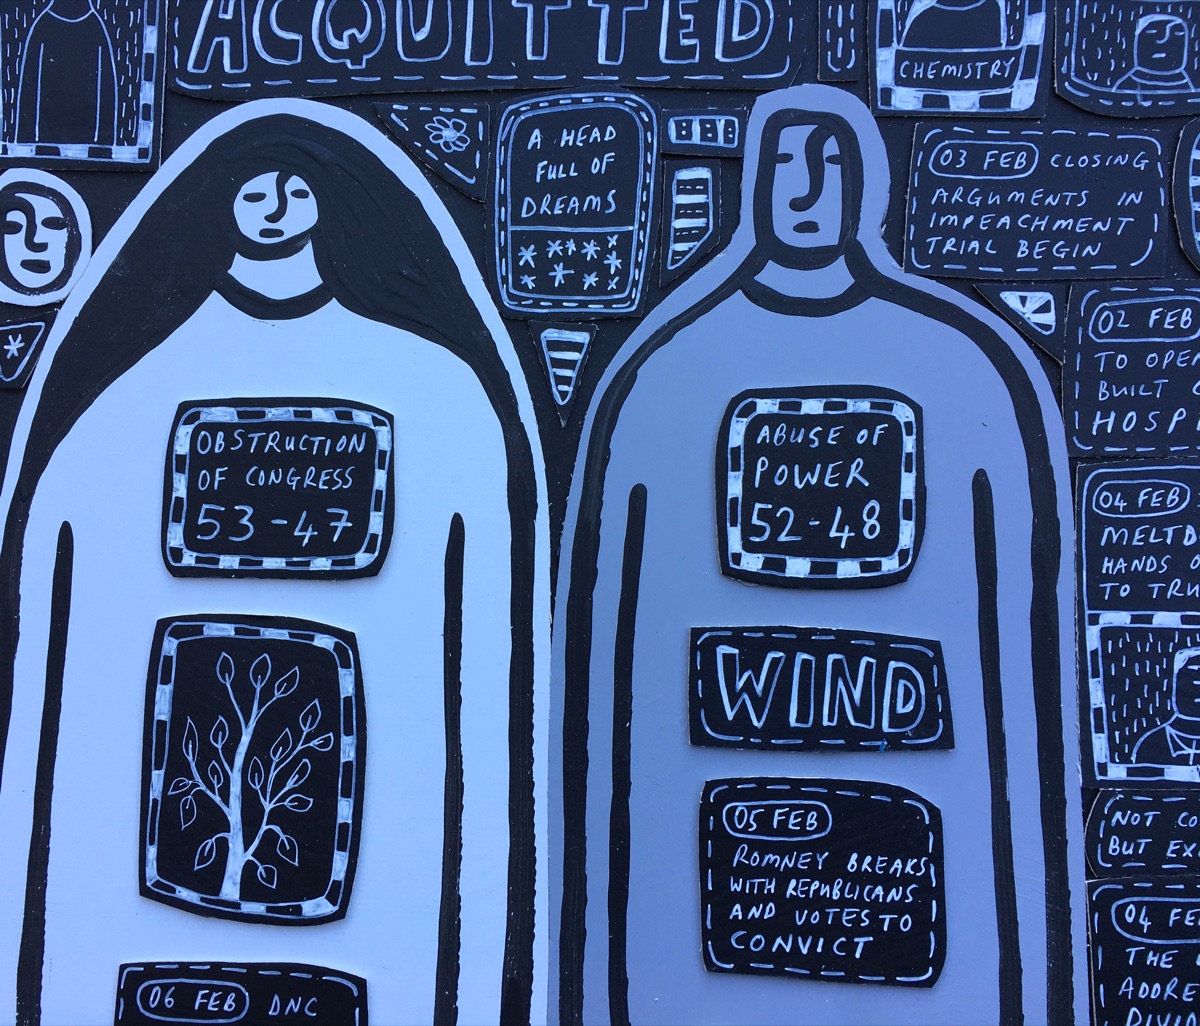 ACQUITTED
CHEMISTRY
A HEAD
FULL OF
DREAMS
03 FEB CLOSING
ARGUMENTS IN
IMPEACHMENT
TRIAL BEGIN
02 FEB
TO
BUILT
OBSTRUCTION
OF CONGRESS
53-47
ABUSE OF
POWER
52-48
04 FEB
HANDS
TO
WIND
05 FEB
ROMNEY BREAKS
WITH REPUBLICANS
AND VOTES TO
CONVICT
NOT
BUT
04
THE
06 FEB DNC